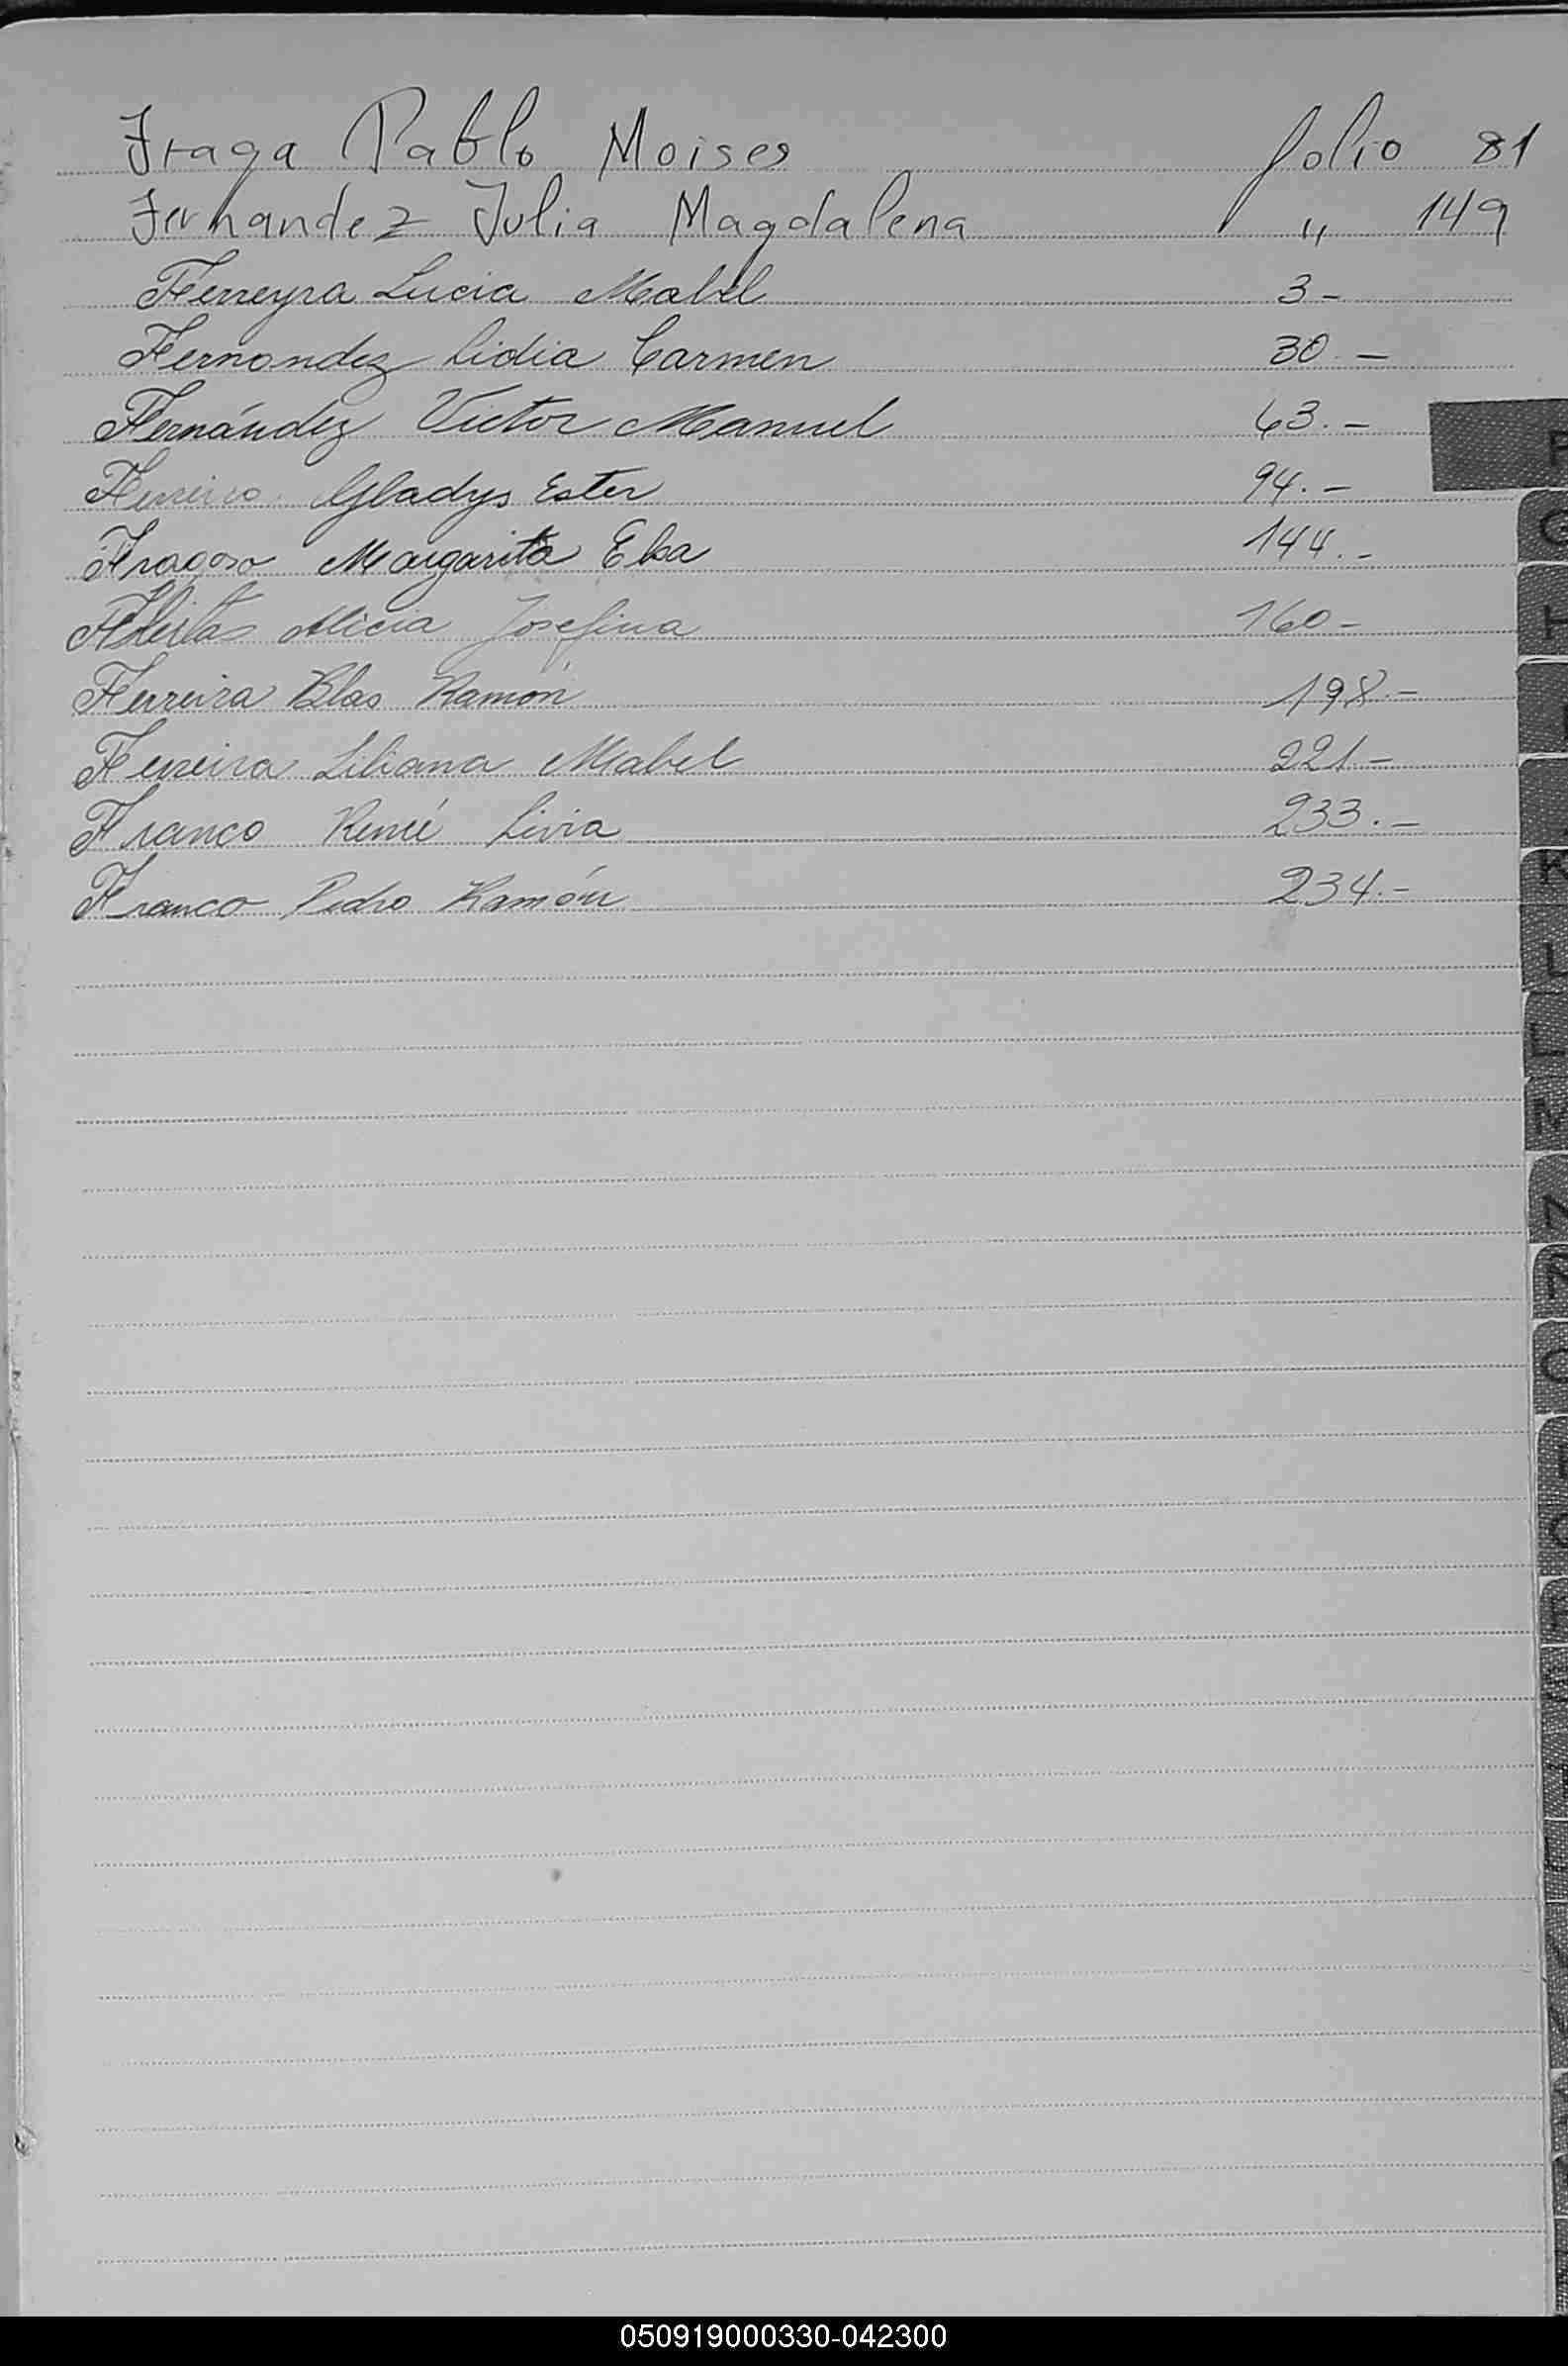 Fraga Pablo Moises folio 81
Fernandez Julia Magdalena " 149
Ferreyra Lucia Mabel 3-
Fernandez Lidia Carmen 30.-
Fernández Victor Manuel 63.-
Gladys Ester 94.-
Fragoso Margarita Elsa 144.-
Alicia Josefina 160-
Ferreira Blas Ramón 198.-
Ferreira Liliana Mabel 221.-
Franco Renée Livia 233.-
Franco Pedro Ramón 234.-
F
G
H
I
K
L
L
M
N
Ñ
O
050919000330-042300